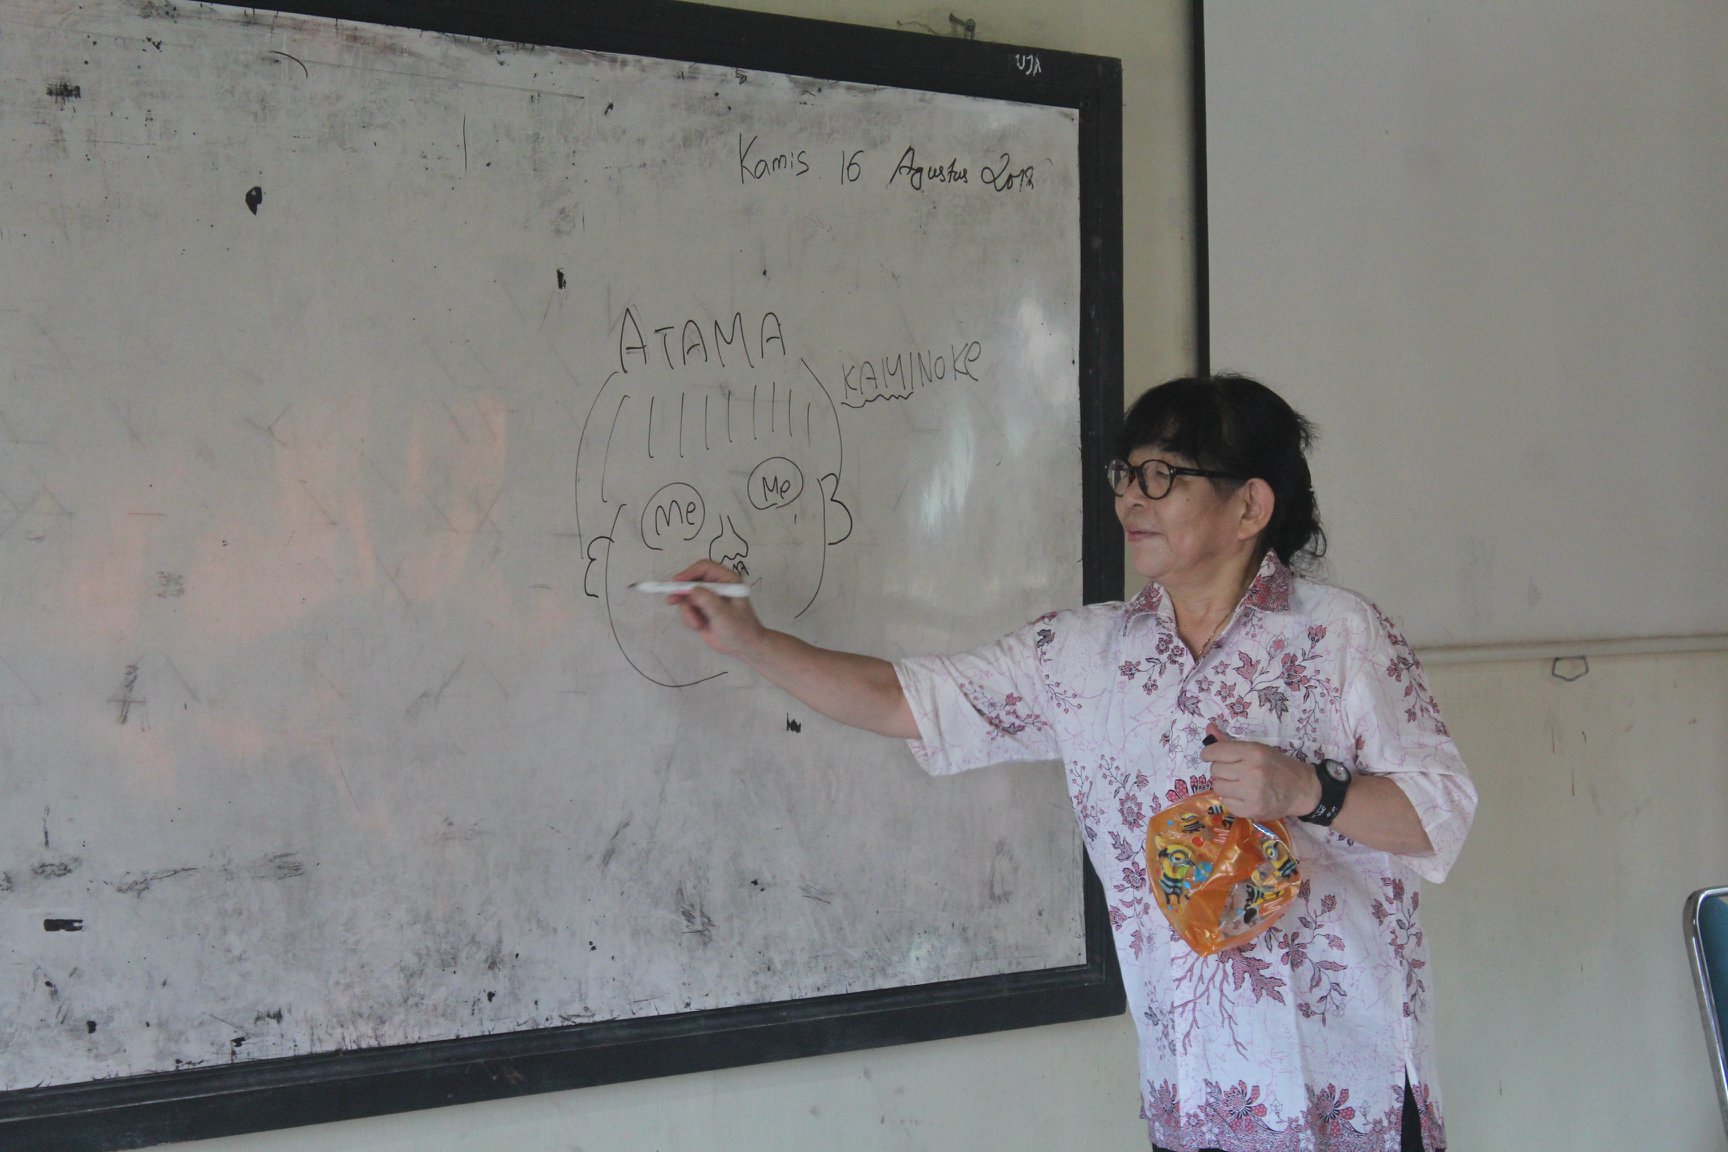 Kamis 16 Agustus 2018
ATAMA
KAMINOKe
Me
Me